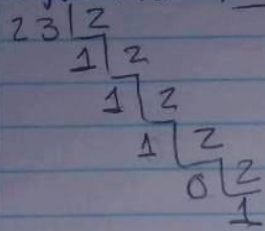 23 2
1 2
1 2
1 2
0 2
1